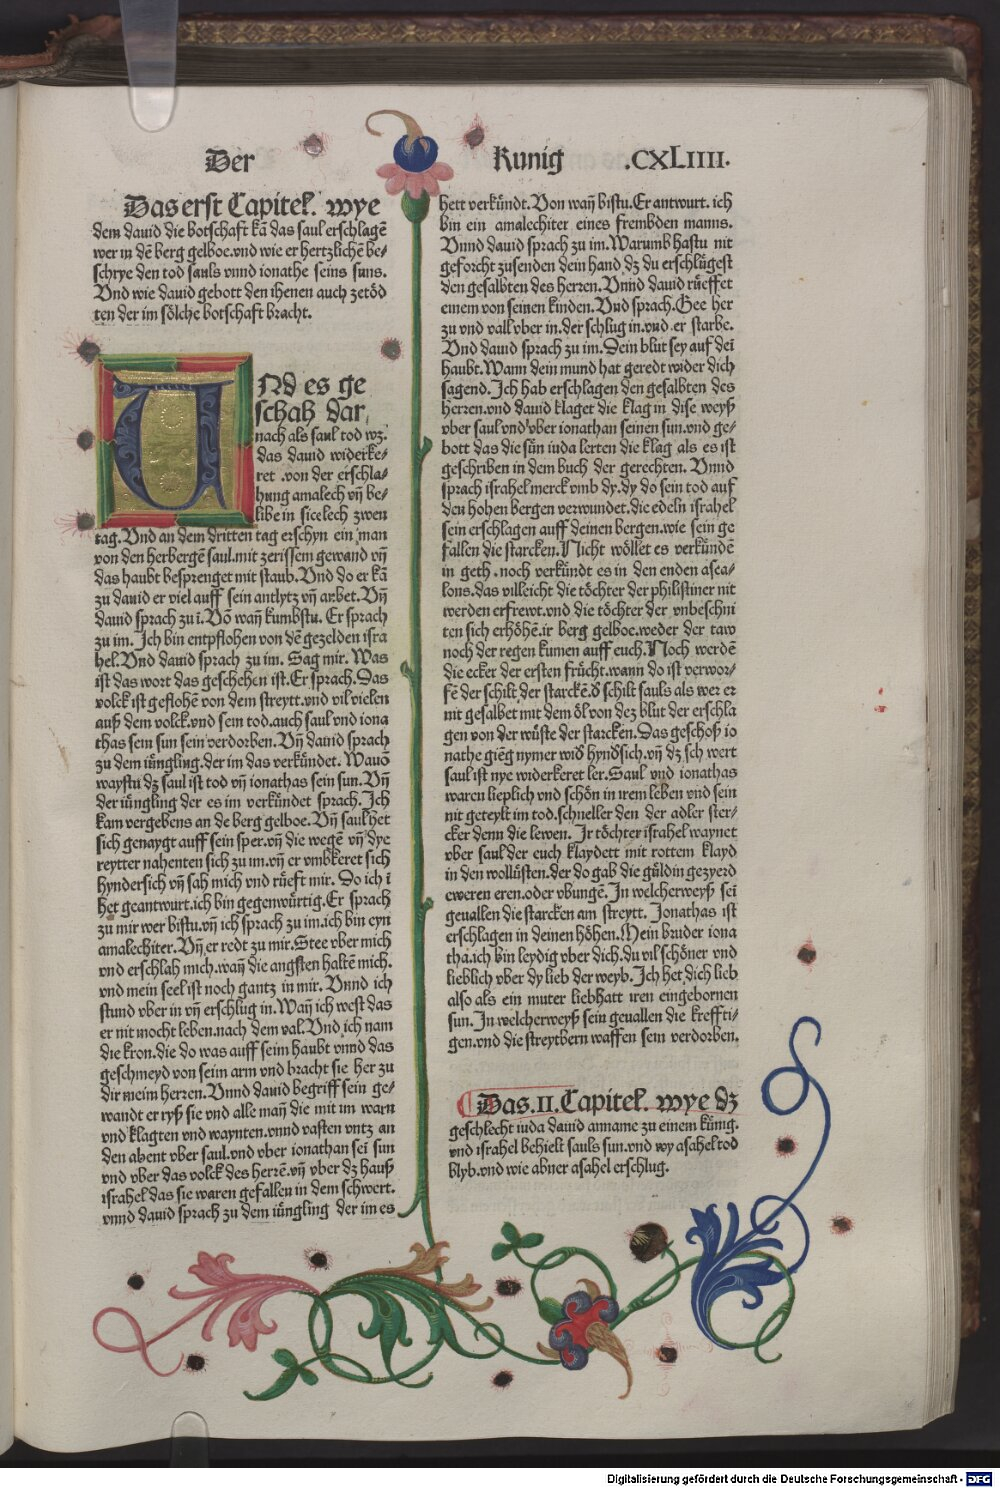 Der
Kunig .CXLIIII.
Das erst Capitel. wye
dem dauid die botschaft kā das saul erschlagē
wer in dē berg gelboe.vnd wie er hertzlichē be⸗
schrye den tod sauls vnnd ionathe seins suns.
Vnd wie dauid gebott den ihenen auch zetöd
ten der im sölche botschaft bracht.
UNd es ge
schah dar
nach als saul tod wz.
das dauid widerke⸗
ret .von der erschla⸗
hung amalech vn̄ be⸗
libe in sicelech zwen
tag. Vnd an dem dritten tag erschyn ein man
von den herbergē saul.mit zerissem gewand vn̄
das haubt besprenget mit staub. Vnd do er kā
zu dauid er viel auff sein antlytz vn̄ anbet. Vn̄
dauid sprach zu ī. Vō wan̄ kumbstu. Er sprach
zu im. Ich bin entpflohen von dē gezelden isra
hel. Vnd dauid sprach zu im. Sag mir. Was
ist das wort das geschehen ist. Er sprach. Das
volck ist geflohē von dem streytt.vnd vil vielen
auß dem volck.vnd sein tod.auch saul vnd iona
thas sein sun sein verdorben. Vn̄ dauid sprach
zu dem iüngling.der im das verkündet. Wauō
waystu dz saul ist tod vn̄ ionathas sein sun. Vn̄
der iüngling der es im verkündet sprach. Ich
kam vergebens an de berg gelboe. Vn̄ saul het
sich genaygt auff sein sper.vn̄ die wegē vn̄ dye
reytter nahenten sich zu im.vn̄ er vmbkeret sich
hyndersich vn̄ sah mich vnd rüeft mir. Do ich ī
het geantwurt.ich bin gegenwürtig. Er sprach
zu mir wer bistu.vn̄ ich sprach zu im.ich bin eyn
amalechiter. Vn̄ er redt zu mir. Stee vber mich
vnd erschlah mich.wan̄ die angsten haltē mich.
vnd mein seel ist noch gantz in mir. Vnnd ich
stund vber in vn̄ erschlug in. Wan̄ ich west das
er nit mocht leben.nach dem val. Vnd ich nam
die kron.die do was auff seim haubt vnnd das
geschmeyd von seim arm vnd bracht sie her zu
dir meim herren. Vnnd dauid begriff sein ge⸗
wandt er ryß sie vnd alle man̄ die mit im warn
vnd klagten vnd waynten.vnnd vasten vntz an
den abent vber saul.vnd vber ionathan sei sun
vnd vber das volck des herrē.vn̄ vber dz hauß
israhel das sie waren gefallen in dem schwert.
vnnd dauid sprach zu dem iüngling der im es
hett verkündt. Von wan̄ bistu. Er antwurt. ich
bin ein amalechiter eines frembden manns.
Vnnd dauid sprach zu im. Warumb hastu nit
geforcht zusenden dein hand dz du erschlügest
den gesalbten des herren. Vnnd dauid rüeffet
einem von seinen kinden. Vnd sprach. Gee her
zu vnd vall vber in.der schlug in.vnd er starbe.
Vnd dauid sprach zu im. Dein blut sey auf dei
haubt. Wann dein mund hat geredt wider dich
sagend. Ich hab erschlagen den gesalbten des
herren.vnd dauid klaget die klag in dise weyß
vber saul vnd vber ionathan seinen sun.vnd ge⸗
bott das die sün iuda lerten die klag als es ist
geschriben in dem buch der gerechten. Vnnd
sprach israhel merck vmb dy.dy do sein tod auf
den hohen bergen verwundet.die edeln israhel
sein erschlagen auff deinen bergen.wie sein ge
fallen die starcken. Nicht wöllet es verkündē
in geth .noch verkündt es in den enden asca⸗
lons.das villeicht die töchter der philistiner nit
werden erfrewt.vnd die töchter der vnbeschni
ten sich erhöhē.ir berg gelboe.weder der taw
noch der regen kumen auff euch. Noch werdē
die ecker der ersten frücht.wann do ist verwor⸗
fē der schilt der starckē.d̄ schilt sauls als wer er
nit gesalbet mit dem öl von dez blut der erschla
gen von der wüste der starcken. Das geschoß io
nathe giēg nymer wid̄ hynd̄sich.vn̄ dz schwert
saul ist nye widerkeret ler. Saul vnd ionathas
waren lieplich vnd schön in irem leben vnd sein
nit geteylt im tod.schneller den der adler ster⸗
cker denn die lewen. Ir töchter israhel waynet
vber saul der euch klaydett mit rottem klayd
in den wollüsten.der do gab die güldin gezyerd
eweren eren.oder vbungē. In welcherweyß sei
geuallen die starcken am streytt. Jonathas ist
erschlagen in deinen höhen. Mein bruder iona
tha.ich bin leydig vber dich.du vil schöner vnd
lieblich vber dy lieb der weyb. Ich het dich lieb
also als ein muter liebhatt iren eingebornen
sun. In welcherweyß sein geuallen die kreffti⸗
gen.vnd die streytbern waffen sein verdorben.
Das .II. Capitel. wye dz
geschlecht iuda dauid anname zu einem künig.
vnd israhel behielt sauls sun.vnd wy asahel tod
blyb.vnd wie abner asahel erschlug.
Digitalisierung gefördert durch die Deutsche Forschungsgemeinschaft - DFG